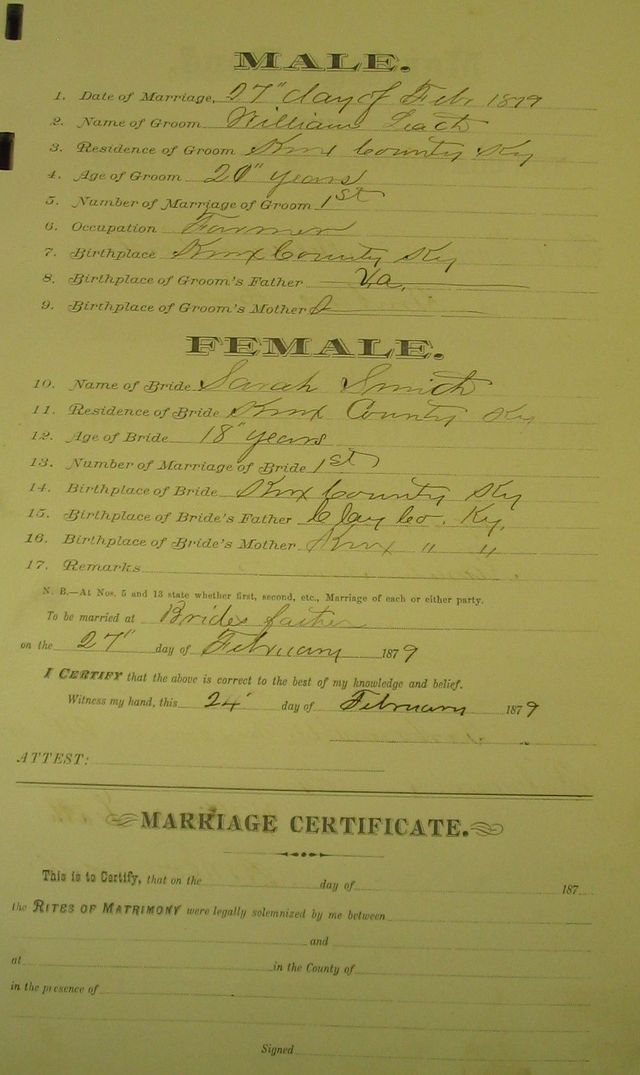 MALE.
1. Date of Marriage, 27" day of Feb. 1879
2. Name of Groom William Leach
3. Residence of Groom Knox County Ky
4. Age of Groom 20" years
5. Number of Marriage of Groom 1st
6. Occupation Farmer
7. Birthplace Knox County Ky
8. Birthplace of Groom's Father Va.
9. Birthplace of Groom's Mother
FEMALE.
10. Name of Bride Sarah Smith
11. Residence of Bride Knox County Ky
12. Age of Bride 18" years
13. Number of Marriage of Bride 1st
14. Birthplace of Bride Knox County Ky
15. Birthplace of Bride's Father Clay Co. Ky.
16. Birthplace of Bride's Mother Knox " "
17. Remarks
N. B.—At Nos. 5 and 13 state whether first, second, etc., Marriage of each or either party.
To be married at Brides father
on the 27" day of February 1879
I CERTIFY that the above is correct to the best of my knowledge and belief.
Witness my hand, this 24" day of February 1879
ATTEST:
MARRIAGE CERTIFICATE.
This is to Certify, that on the day of 187
the RITES OF MATRIMONY were legally solemnized by me between
and
at in the County of
in the presence of
Signed